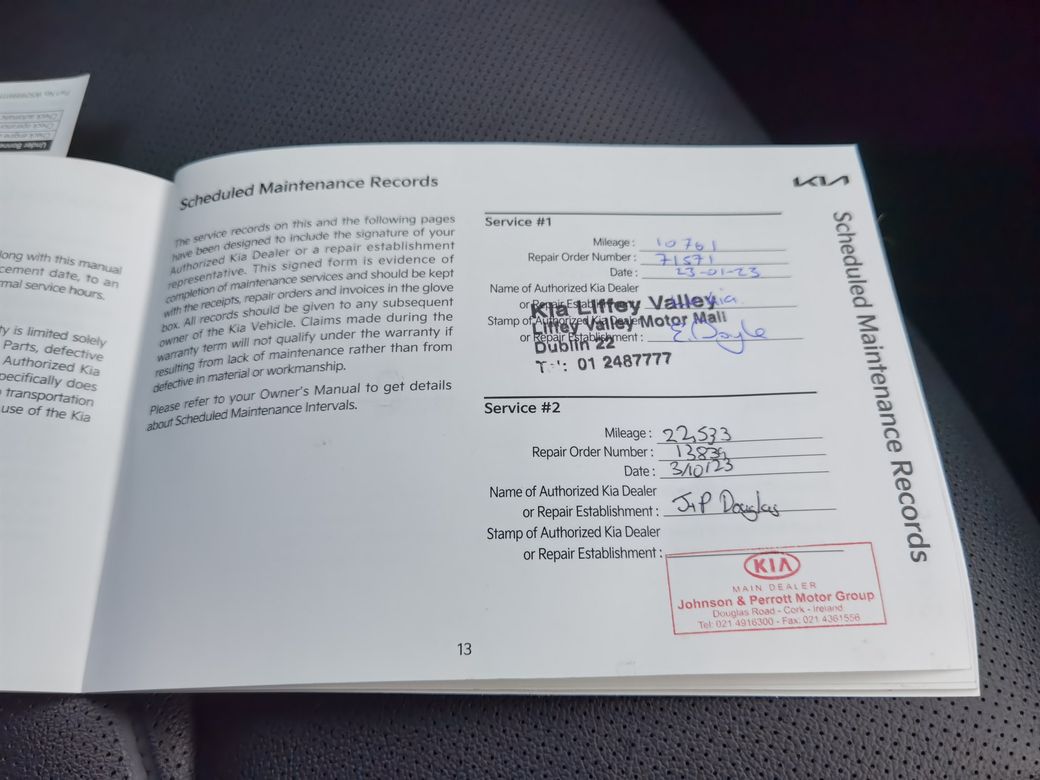 Part No.
Check automatic
Check operation
Check engine
Under Bonne
long with this manual
cement date, to an
rmal service hours.
ty is limited solely
Parts, defective
Authorized Kia
pecifically does
transportation
use of the Kia
Scheduled Maintenance Records
The service records on this and the following pages
have been designed to include the signature of your
Authorized Kia Dealer or a repair establishment
representative. This signed form is evidence of
completion of maintenance services and should be kept
with the receipts, repair orders and invoices in the glove
box. All records should be given to any subsequent
owner of the Kia Vehicle. Claims made during the
warranty term will not qualify under the warranty if
resulting from lack of maintenance rather than from
defective in material or workmanship.
Please refer to your Owner's Manual to get details
about Scheduled Maintenance Intervals.
KIA
Service #1
Mileage : 10761
Repair Order Number : 71571
Date : 23-01-23
Name of Authorized Kia Dealer
or Repair Establishment : Kia
Stamp of Authorized Kia Dealer
or Repair Establishment : E. Doyle
Kia Liffey Valley
Liffey Valley Motor Mall
Dublin 22
Tel: 01 2487777
Service #2
Mileage : 22,533
Repair Order Number :
Date : 3/10/23
Name of Authorized Kia Dealer
or Repair Establishment : J+P Douglas
Stamp of Authorized Kia Dealer
or Repair Establishment :
KIA
MAIN DEALER
Johnson & Perrott Motor Group
Douglas Road - Cork - Ireland
Tel: 021 4916300 - Fax: 021 4361556
Scheduled Maintenance Records
13